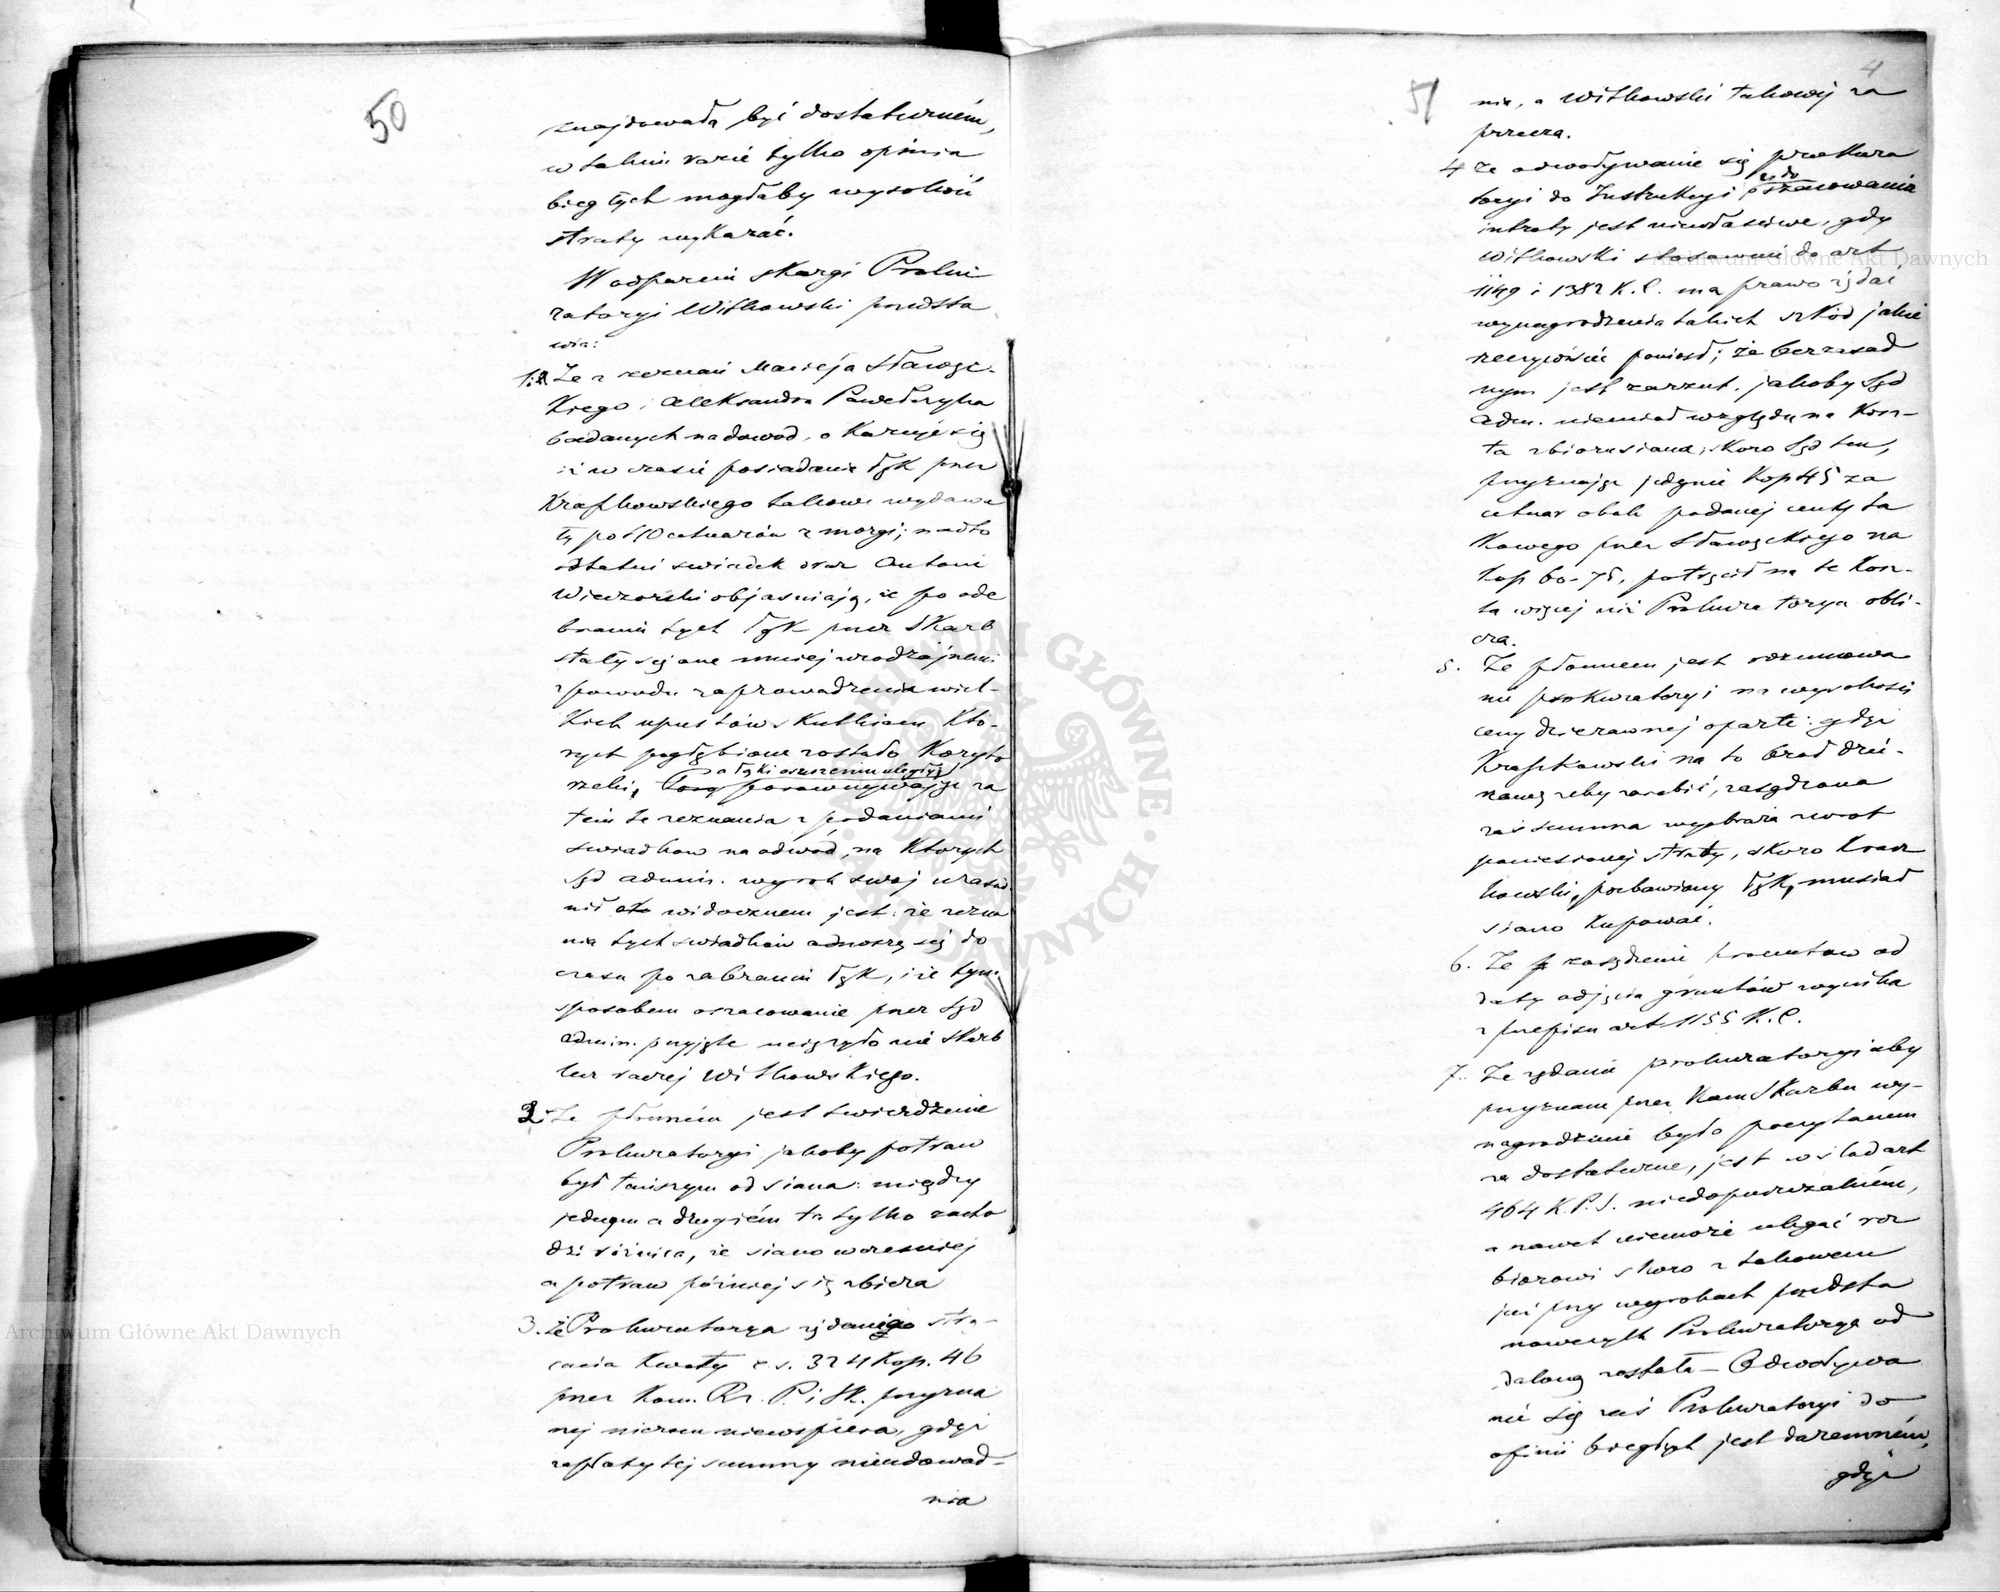 50
znajdowała być dostatecznem,
w takim razie tylko opinia
biegłych mogłaby wysokość
straty wykazać.
W odparciu skargi Proku
ratoryi Witkowski przedsta
wia:
1. Że z zeznań Macieja Sławęc-
kiego i Aleksandra Pawełczyka
badanych na dowod, okazuje się
iż w czasie posiadania łąk przez
Krapkowskiego takowe wydawa
ły po 10 cetnarów z morgi; nadto
ostatni swiadek oraz Antoni
Wieczorski objasniają, że po ode
braniu tych łąk przez Skarb
stały się one mniej urodzajnemi
z powodu zaprowadzenia wiel-
kich upustów skutkiem któ-
rych pogłębione zostało koryto
a łąki osuszeniu uległy
rzeki, porownywając za
tem te zeznania z podaniami
swiadkow na odwód, na ktorych
Sąd admin. wyrok swoj uzasad
nił widocznem jest: że zezna
nia tych swiadków odnoszą się do
czasu po zabraniu łąk, i że tym
sposobem oszacowanie przez Sąd
admin. przyjęte uciążyło nie Skarb
lecz raczej Witkowskiego.
2. Że płonném jest twierdzenie
Prokuratoryi jakoby potraw
był tańszym od siana: między
jednym a drugiém ta tylko zacho
dzi róznica, że siano wczesniej
a potraw później się zbiera
3. że Prokuratorya żądanego
cenia kwoty r.s. 324 kop. 46
przez Kom. Rz. P. i Sk. przyzna
nej niczem niewspiera, gdyż
zapłaty tej summy nieudowad-
nia
4
51
nia, a Witkowski takowéj za
przecza.
4 Że odwoływanie się prokura
toryi do Instrukcyi oszacowania
intraty jest niewłasciwe, gdy
Witkowski stosownie do art
1149 i 1382 K.C. ma prawo żądać
wynagrodzenia takich szkód jakie
rzeczywiście poniosł; że bezzasad
nym jest zarzut, jakoby Sąd
adm. niemiał względu na kosz-
ta zbioru siana, skoro Sąd ten,
przyznając jedynie kop 45 za
cetnar obok podanej ceny ta
kowego przez Sławęckiego na
kop 60-75, potrącił na te kosz-
ta więcej niż Prokuratorya obli-
cza.
5. Że płonnem jest rozumowa
nie prokuratoryi na wysokości
ceny dzierzawnej oparte: gdyż
Krapkowski na to brał dzie-
rzawę żeby zarobić, zasądzona
zaś summa wyobraża zwrot
poniesionej straty, skoro Krap
kowski, pozbawiony łąk, musiał
siano kupować.
6. Że zasądzenie procentow od
daty odjęcia gruntów wynika
z przepisu art. 1155 K.C.
7. Że żądanie prokuratoryi aby
przyznam przez Kom Skarbu wy-
nagrodzenie było poczytanem
za dostateczne, jest w slad art
464 K.P.S. niedopuszczalném,
a nawet niemoże ulegać roz
biorowi skoro z takowem
już przy wyrokach przedsta
nowczych Prokuratorya od
daloną została – Odwoływa
nie się zaś Prokuratoryi do
opinii biegłych jest daremném,
gdyż
Archiwum Główne Akt Dawnych
Archiwum Główne Akt Dawnych
ARCHIWUM GŁÓWNE AKT DAWNYCH